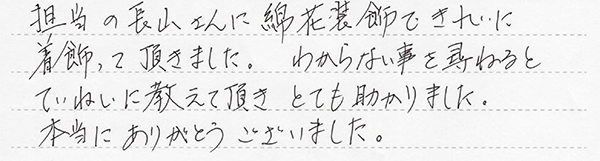 担当の長山さんに綿花装飾できれいに
着飾って頂きました。 わからない事を尋ねると
ていねいに教えて頂き とても助かりました。
本当にありがとうございました。